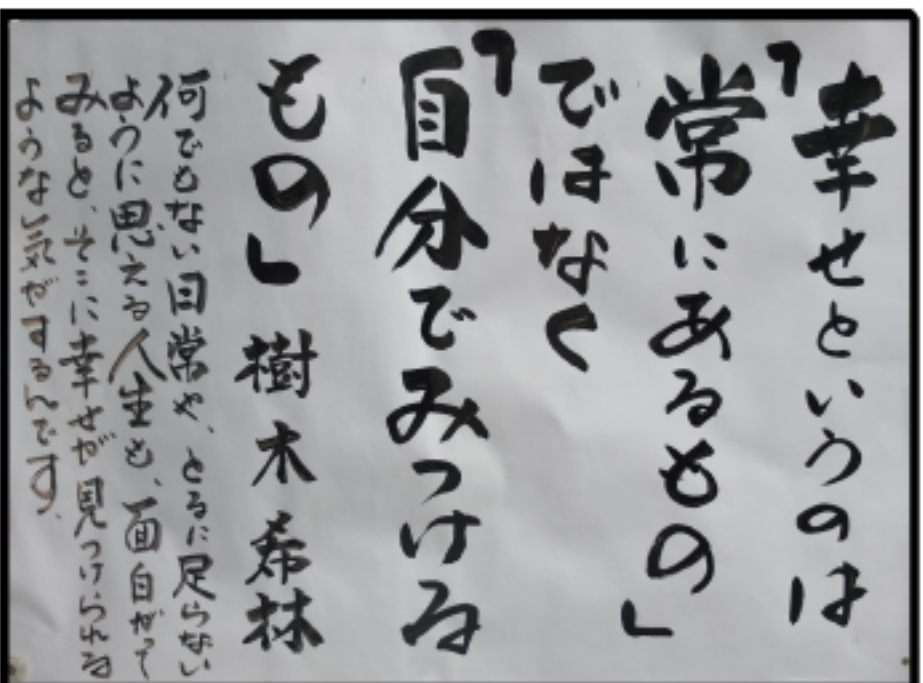 幸せというのは
「常にあるもの」
ではなく
「自分でみつける
もの」樹木希林
何でもない日常や、とるに足らない
ように思える人生も、面白がって
みると、そこに幸せが見つけられる
ような気がするんです。